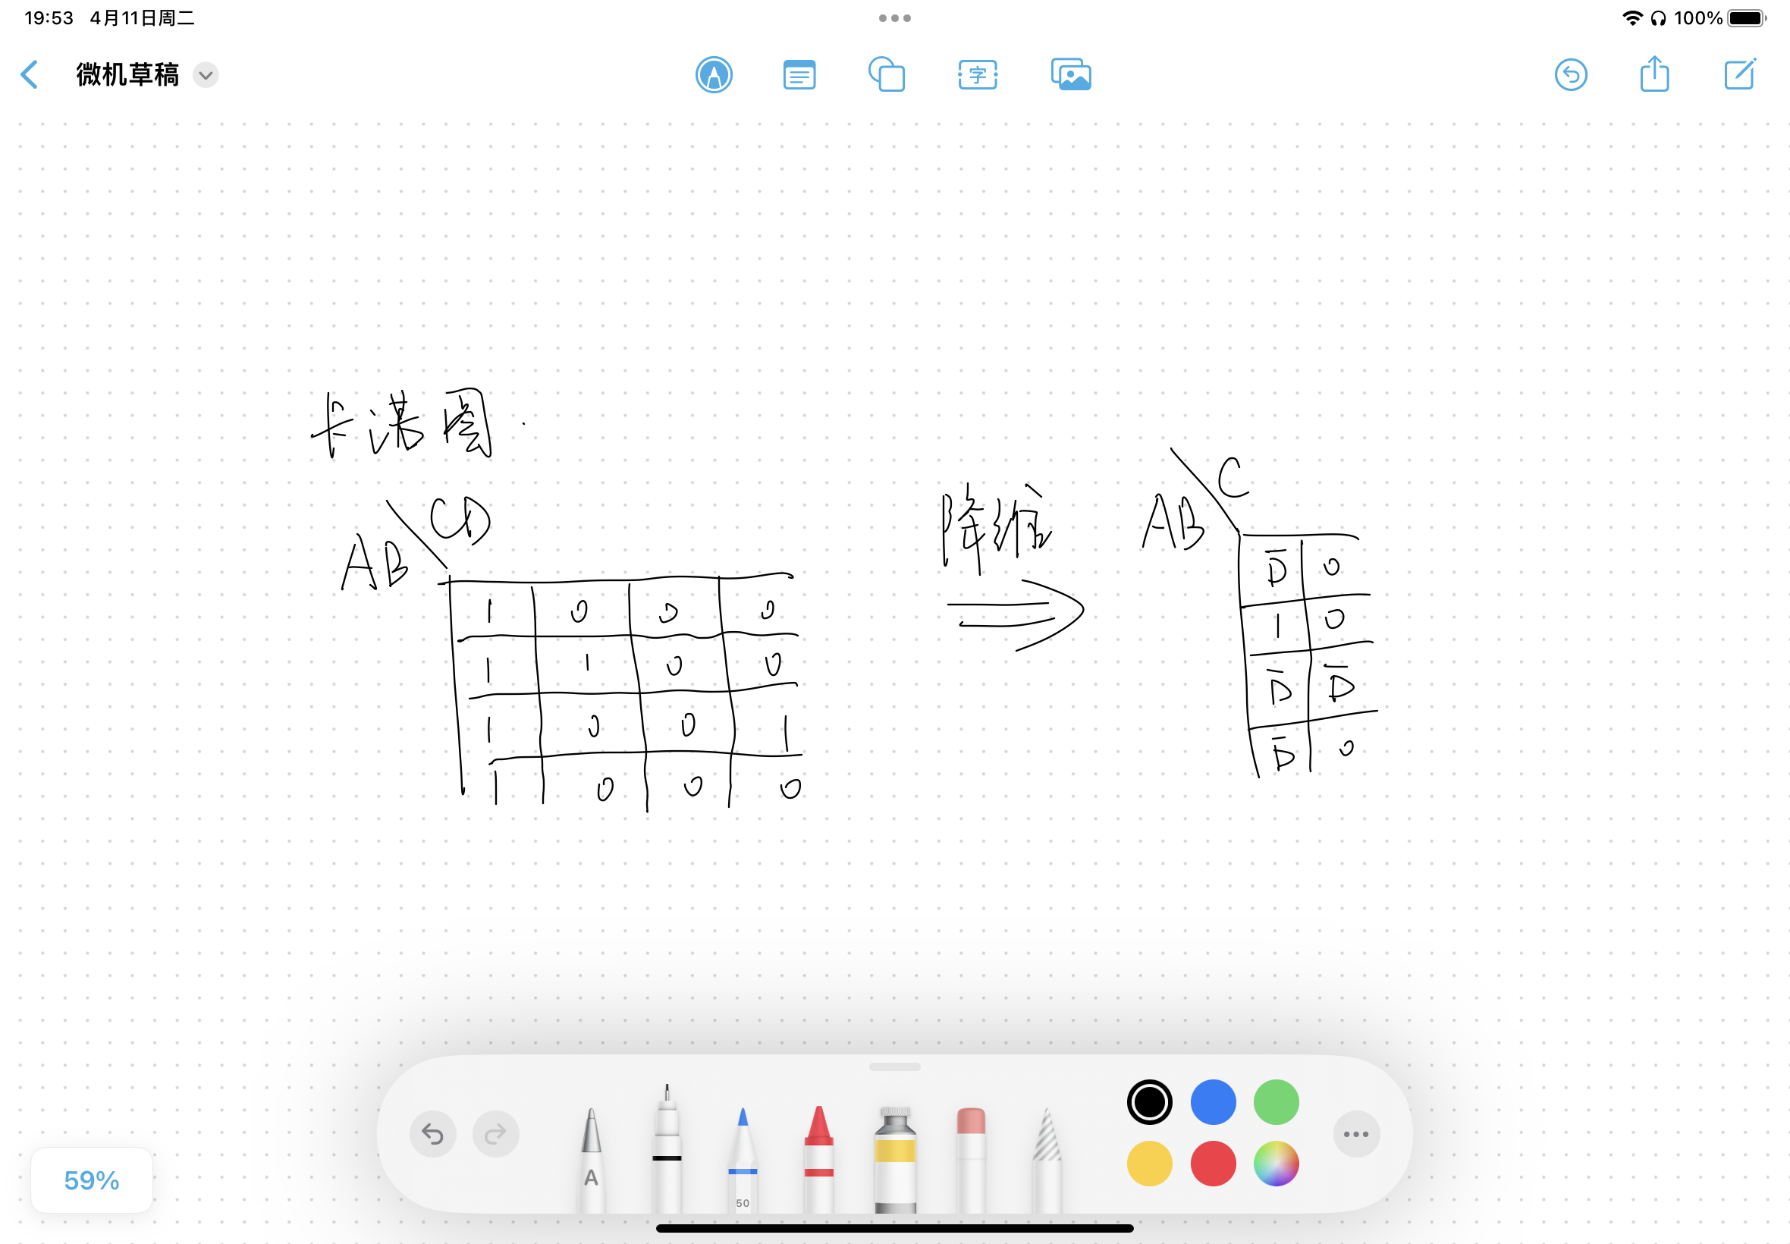 19:53 4月11日周二
100%
微机草稿
字
卡诺图.
AB\CD
1 0 0 0
1 1 0 0
1 0 0 1
1 0 0 0
降维
AB\C
D̅ 0
1 0
D̅ D̅
D̅ 0
A
50
59%